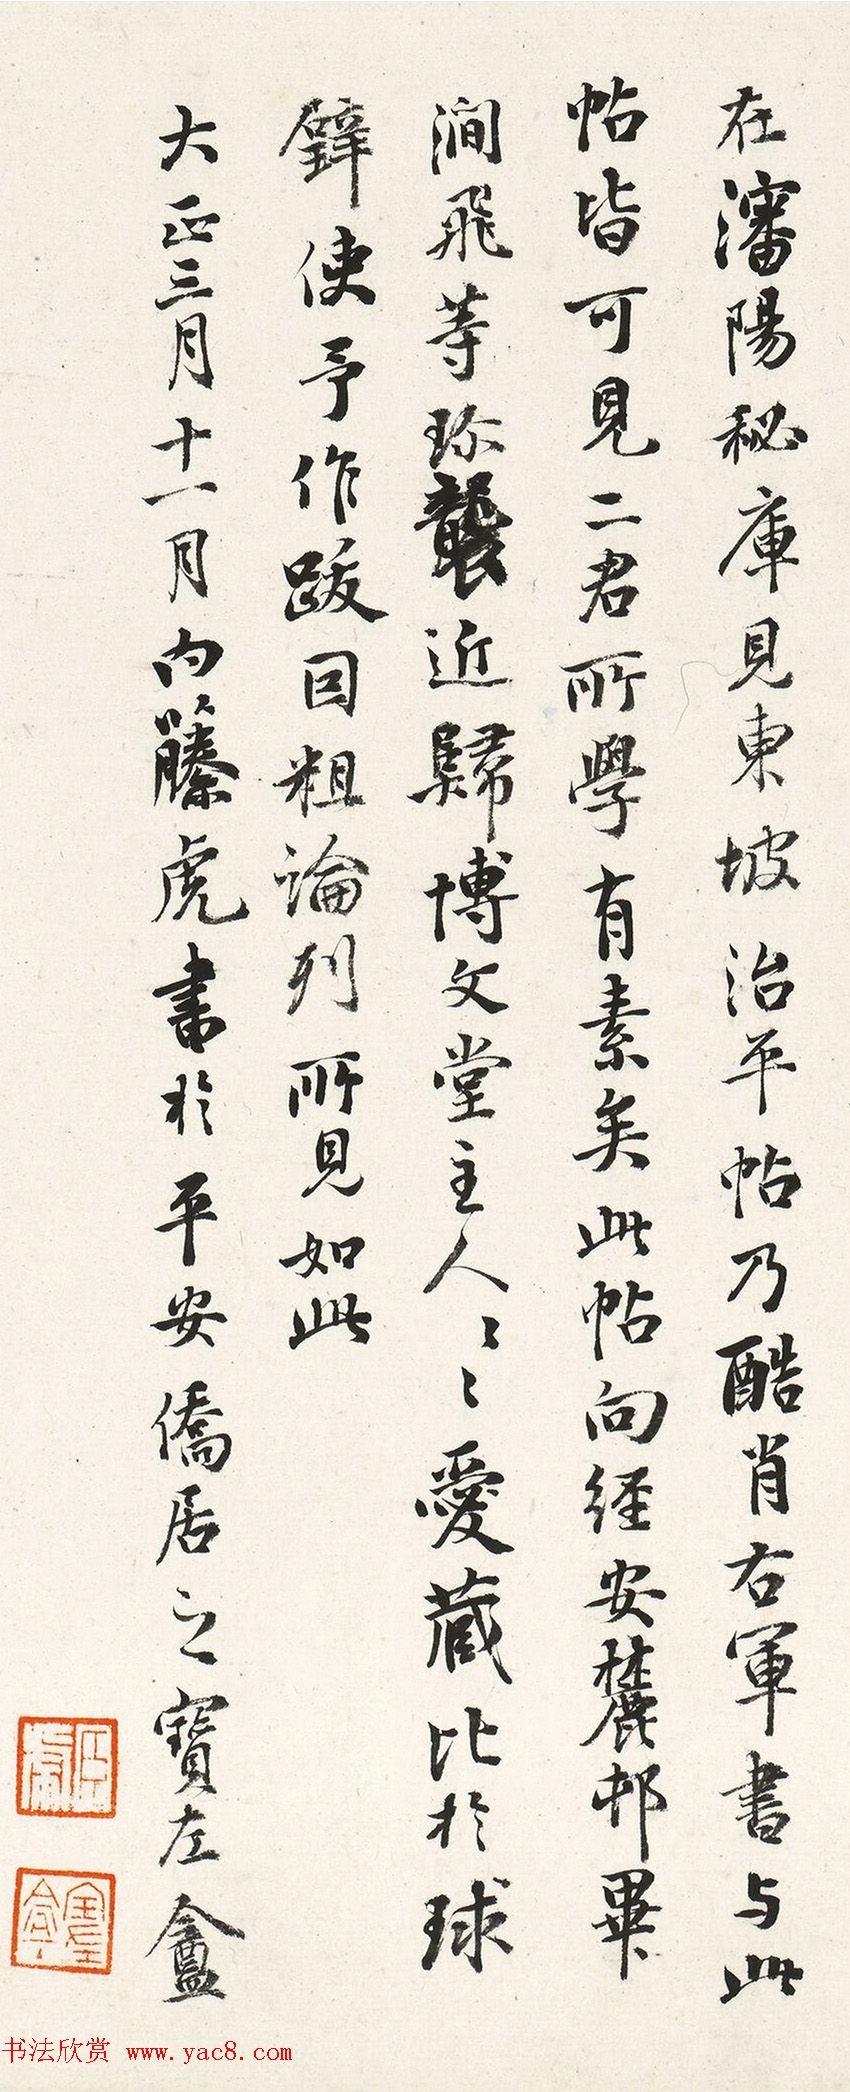 在瀋陽秘庫見東坡治平帖乃酷肖右軍書与此
帖皆可見二君所學有素矣此帖向経安麓邨畢
澗飛等珎襲近歸博文堂主人〻〻愛蔵比於球
鐸使予作跋因粗論列所見如此
大正三月十一月内藤虎書於平安僑居之寶左盦
臣虎
寶左盦
书法欣赏 www.yac8.com